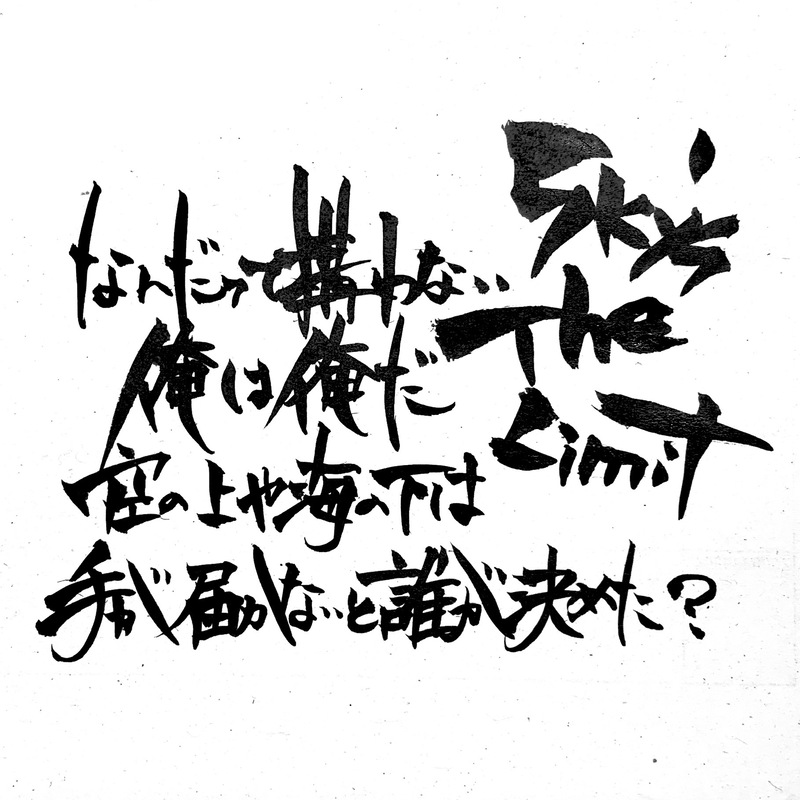 Sky's
The
Limit
なんだって構わない
俺は俺だ
空の上や海の下は
手が届かないと誰が決めた?